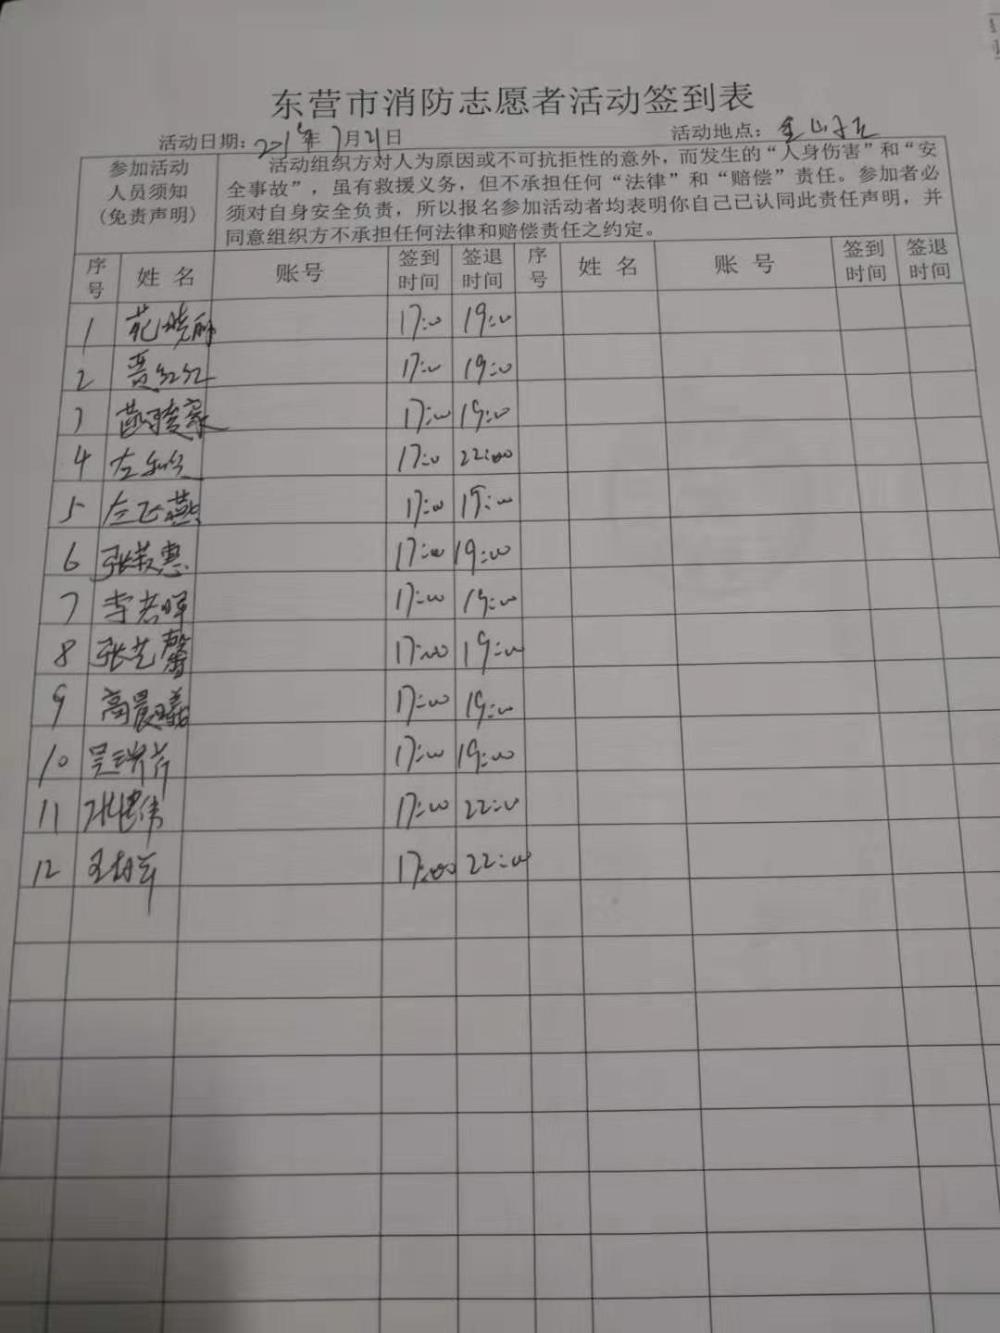 东营市消防志愿者活动签到表
活动日期: 年7月21日 活动地点: 金山
参加活动人员须知(免责声明)
活动组织方对人为原因或不可抗拒性的意外，而发生的“人身伤害”和“安
全事故”，虽有救援义务，但不承担任何“法律”和“赔偿”责任。参加者必
须对自身安全负责，所以报名参加活动者均表明你自己已认同此责任声明，并
同意组织方不承担任何法律和赔偿责任之约定。
序号 姓名 账号 签到时间 签退时间 序号 姓名 账号 签到时间 签退时间
1 17:00 19:00
2 贾红红 17:00 19:00
3 17:00 19:00
4 左 17:00 22:00
5 左飞燕 17:00 19:00
6 张 惠 17:00 19:00
7 李 晖 17:00 19:00
8 张艺馨 17:00 19:00
9 高晨曦 17:00 19:00
10 吴瑞芹 17:00 19:00
11 伟 17:00 22:00
12 王 17:00 22:00